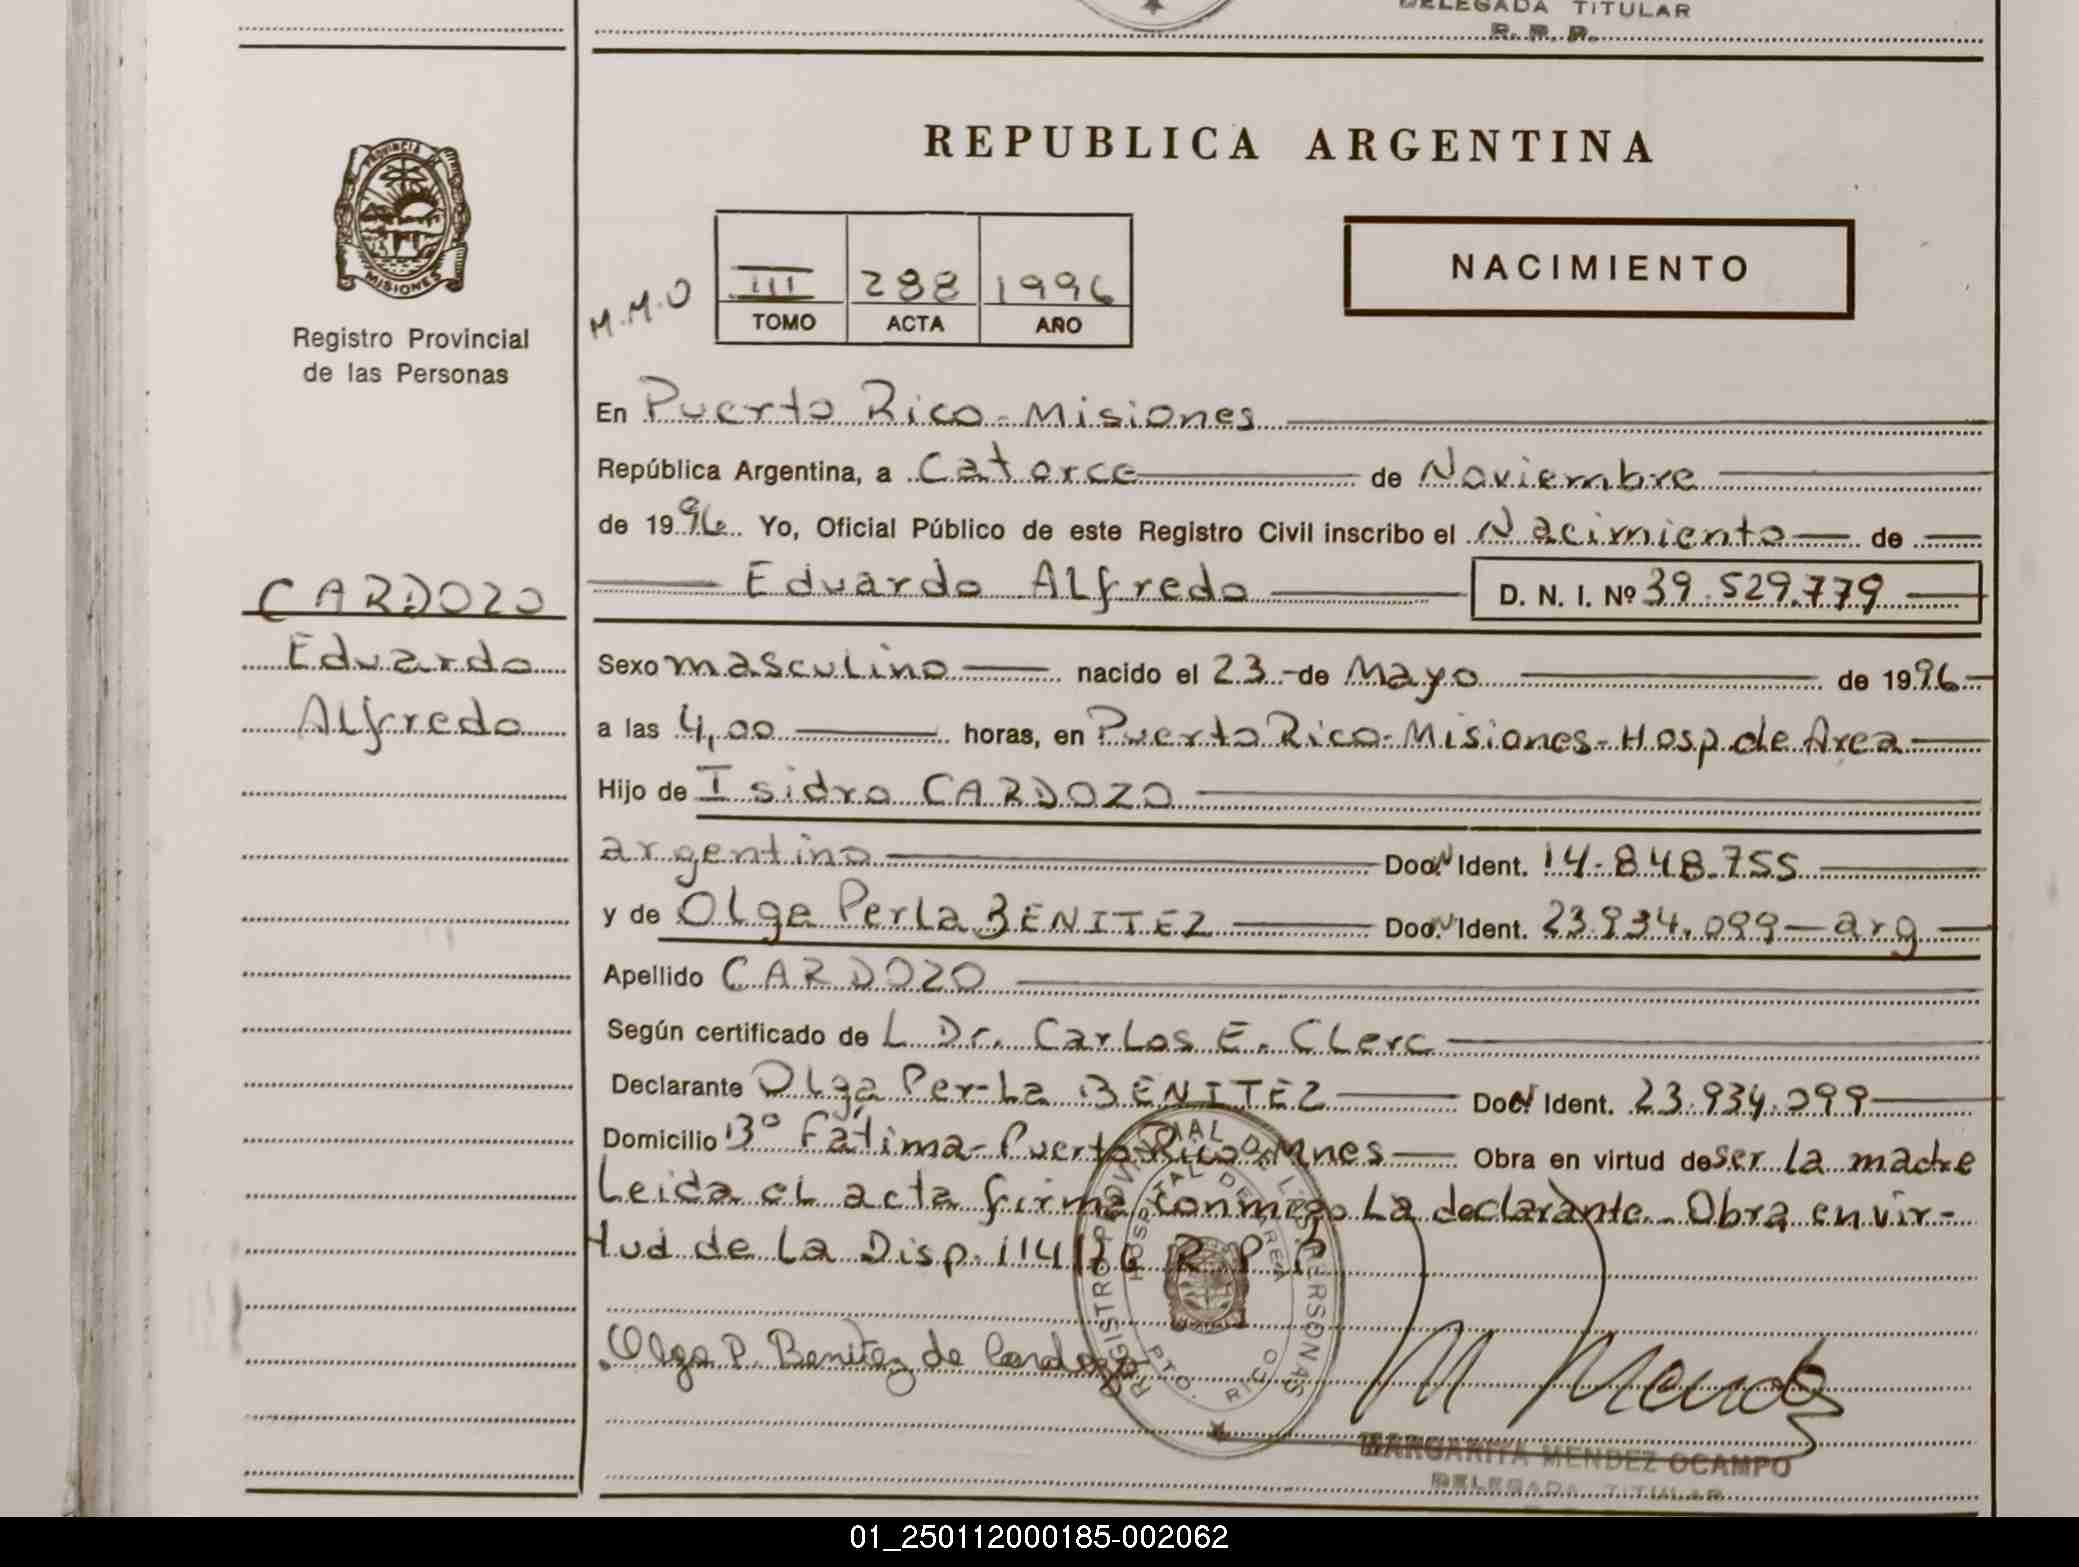 DELEGADA TITULAR
R. P. P.
REPUBLICA ARGENTINA
PROVINCIA DE
MISIONES
Registro Provincial
de las Personas
M.M.O
III 288 1996
TOMO ACTA AÑO
NACIMIENTO
En Puerto Rico - Misiones
República Argentina, a Catorce de Noviembre
de 1996 Yo, Oficial Público de este Registro Civil inscribo el Nacimiento de
Eduardo Alfredo D. N. I. Nº 39.529.779
CARDOZO
Eduardo
Alfredo
Sexo masculino nacido el 23 - de Mayo de 1996
a las 4,00 horas, en Puerto Rico - Misiones - Hosp. de Area
Hijo de Isidro CARDOZO
argentino Doc. Ident. 14.848.755
y de Olga Perla BENITEZ Doc. Ident. 23.934.099 - arg
Apellido CARDOZO
Según certificado de L Dr. Carlos E. Clerc
Declarante Olga Perla BENITEZ Doc. Ident. 23.934.099
Domicilio Bº Fátima - Puerto Rico - Mnes Obra en virtud de ser la madre
Leida el acta firma conmigo la declarante. Obra en vir-
tud de la Disp. 114/ R.P.P
REGISTRO PROVINCIAL DE LAS PERSONAS
HOSPITAL DE AREA
PTO. RICO
Olga P. Benitez de Cardozo
M Mendez
MARGARITA MENDEZ OCAMPO
DELEGADA TITULAR
01_250112000185-002062